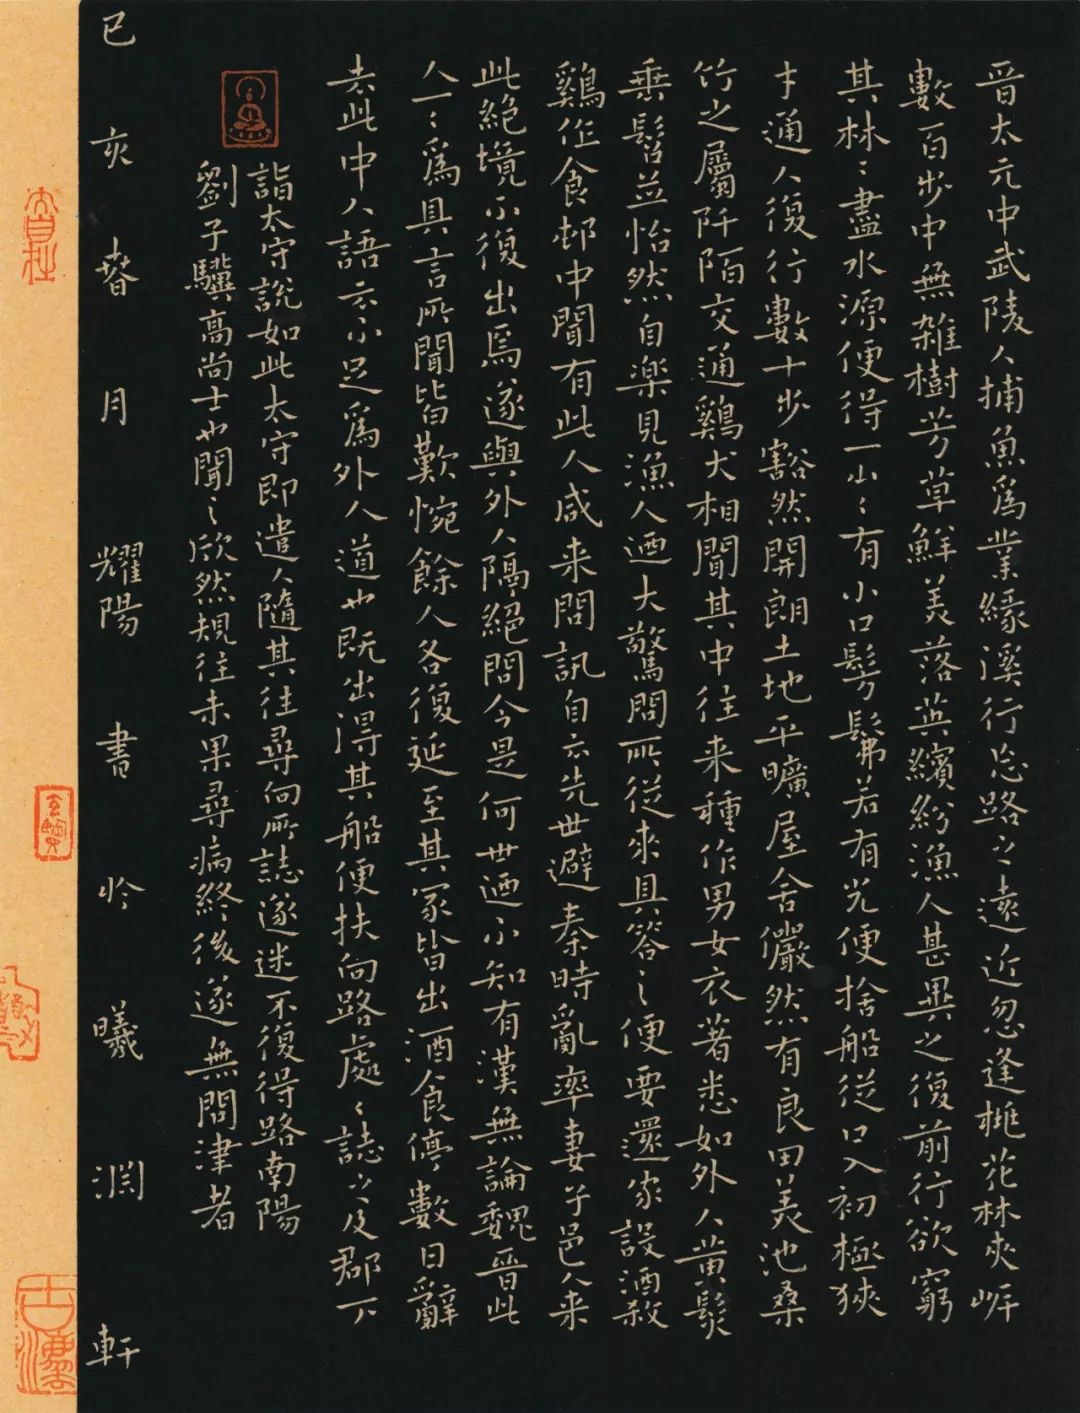 晉太元中武陵人捕魚爲業緣溪行忘路之遠近忽逢桃花林夾岸
數百步中無雜樹芳草鮮美落英繽紛漁人甚異之復前行欲窮
其林〻盡水源便得一山〻有小口髣髴若有光便捨船從口入初極狹
才通人復行數十步豁然開朗土地平曠屋舍儼然有良田美池桑
竹之屬阡陌交通鷄犬相聞其中往来種作男女衣著悉如外人黃髮
垂髫並怡然自樂見漁人迺大驚問所從來具答之便要還家設酒殺
鷄作食邨中聞有此人咸来問訊自云先世避秦時亂率妻子邑人来
此絕境不復出焉遂與外人隔絕問今是何世迺不知有漢無論魏晉此
人一〻爲具言所聞皆歎惋餘人各復延至其家皆出酒食停數日辭
去此中人語云不足爲外人道也既出得其船便扶向路處〻誌之及郡下
詣太守說如此太守即遣人隨其往尋向所誌遂迷不復得路南陽
劉子驥高尚士也聞之欣然規往未果尋病終後遂無問津者
己亥旾月耀陽書於曦淵軒